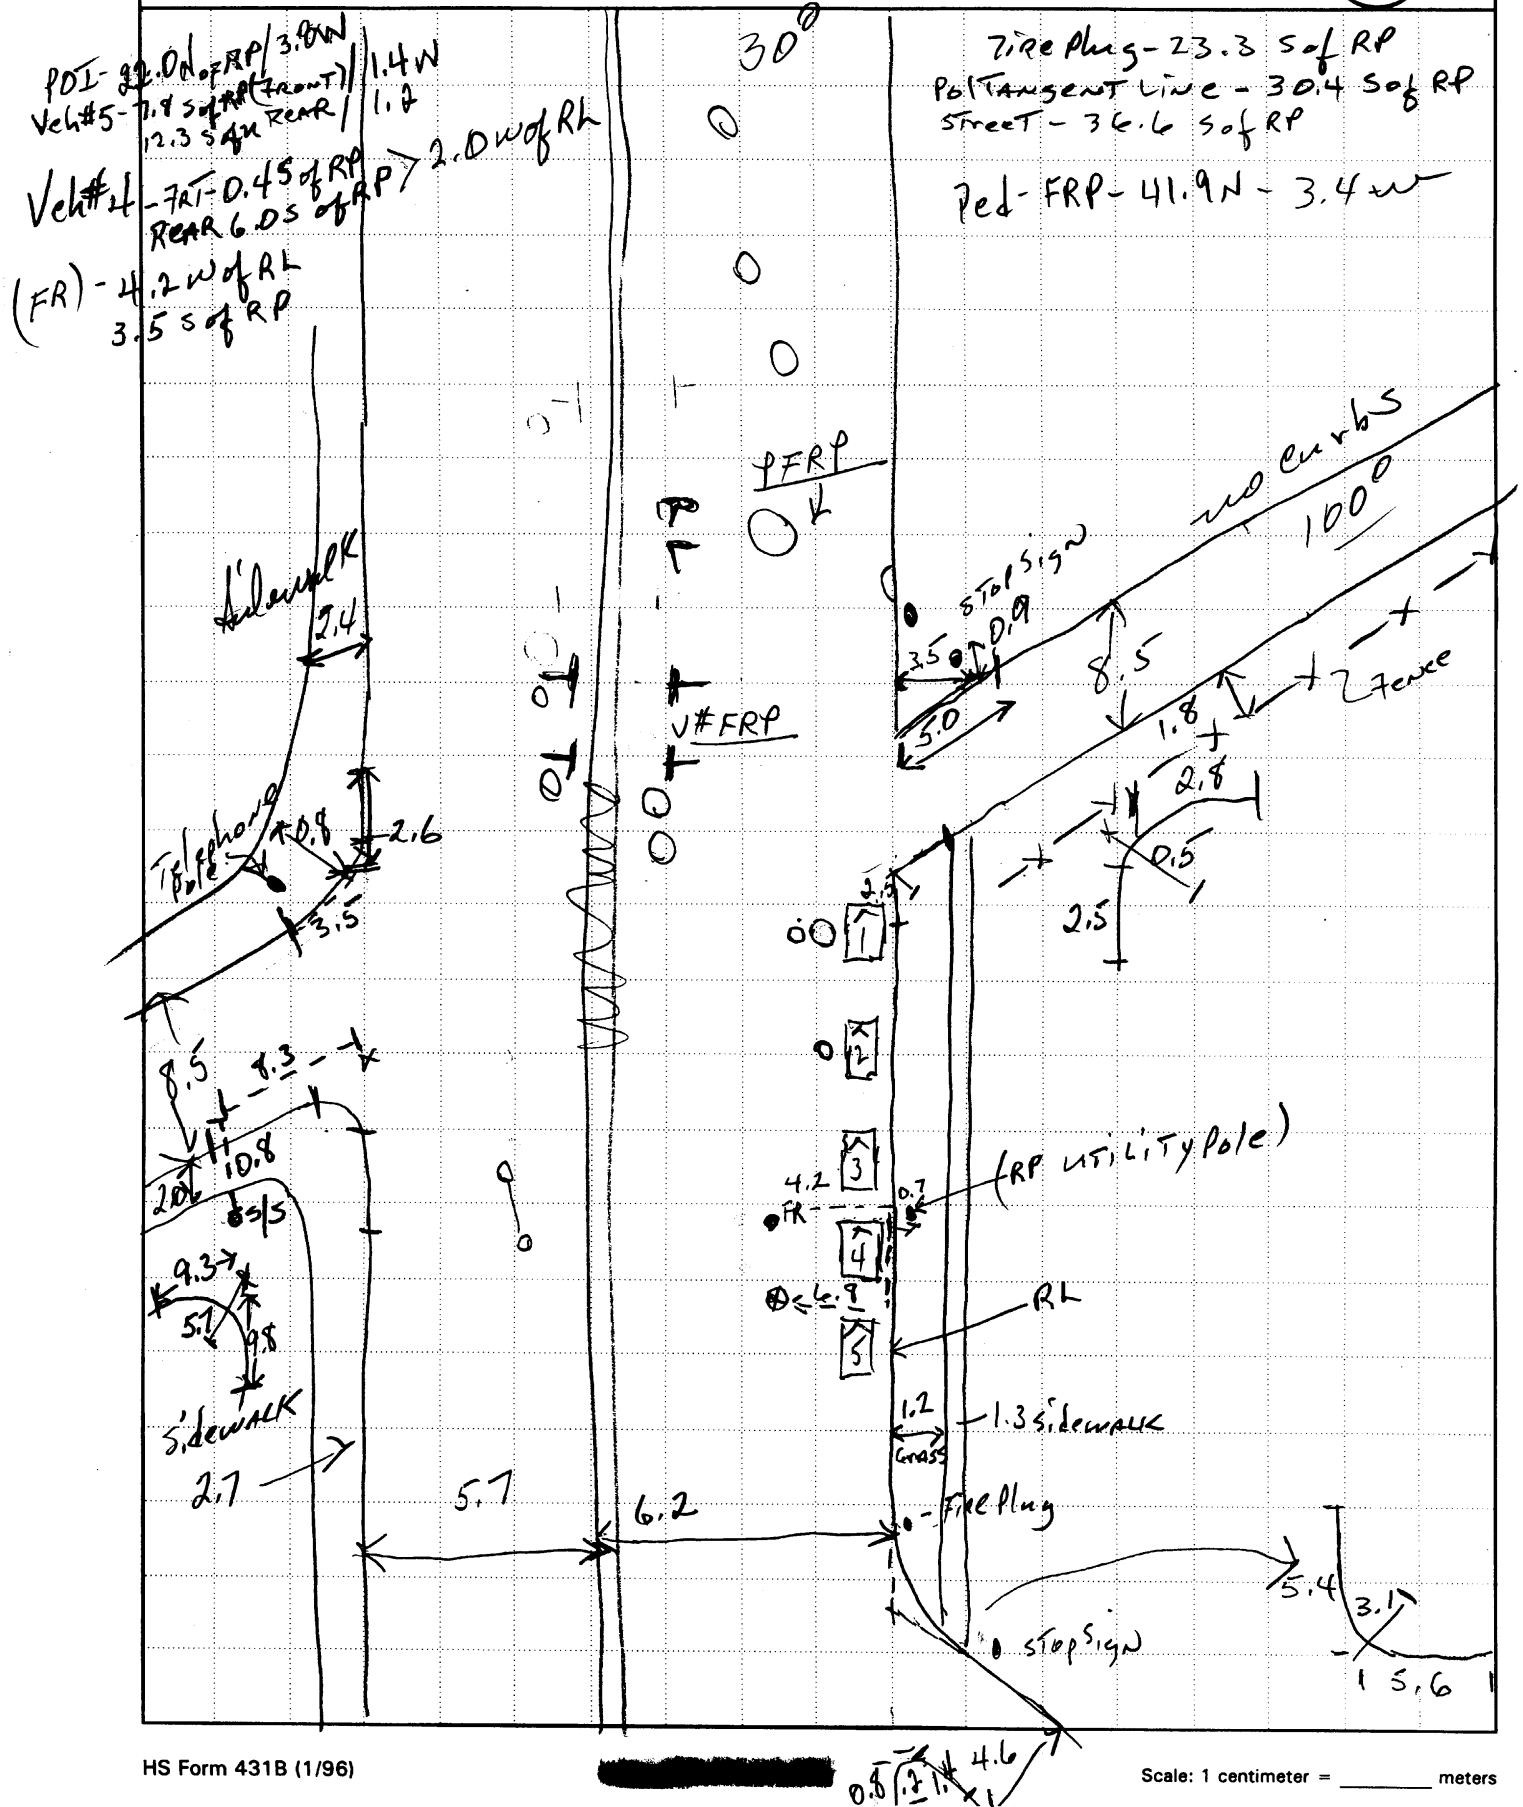 POI- 22.0N of RP/3.8W
Veh#5- 7.8 S of RP (FRONT)/ 1.4W
12.3 S of REAR / 1.2
Veh#4 - FRT-0.4 S of RP > 2.0 W of RL
REAR 6.0 S of RP
(FR) - 4.2 W of RL
3.5 S of RP
30°
Fire Plug - 23.3 S of RP
PolTANGENT Line - 30.4 S of RP
STreeT - 36.6 S of RP
Ped- FRP- 41.9N - 3.4 W
PFRP
no curbs
100°
Sidewalk
2.4
STOP SigN
0.9
3.5
5.0
8.5
1.8
Fence
V#FRP
2.8
0.5
2.5
Telephone
Pole
0.8
2.6
3.5
2.5
1
2
3
4
5
8.5
8.3
10.8
2.0
S/S
9.3
5.7
9.8
4.2
FR
0.7
(RP UTiLiTY Pole)
6.9
RL
sidewALK
2.7
1.2
GRASS
1.3 sidewALK
5.7
6.2
Fire Plug
STOP SigN
5.4
3.1
5.6
4.6
0.8
HS Form 431B (1/96)
Scale: 1 centimeter = ________ meters